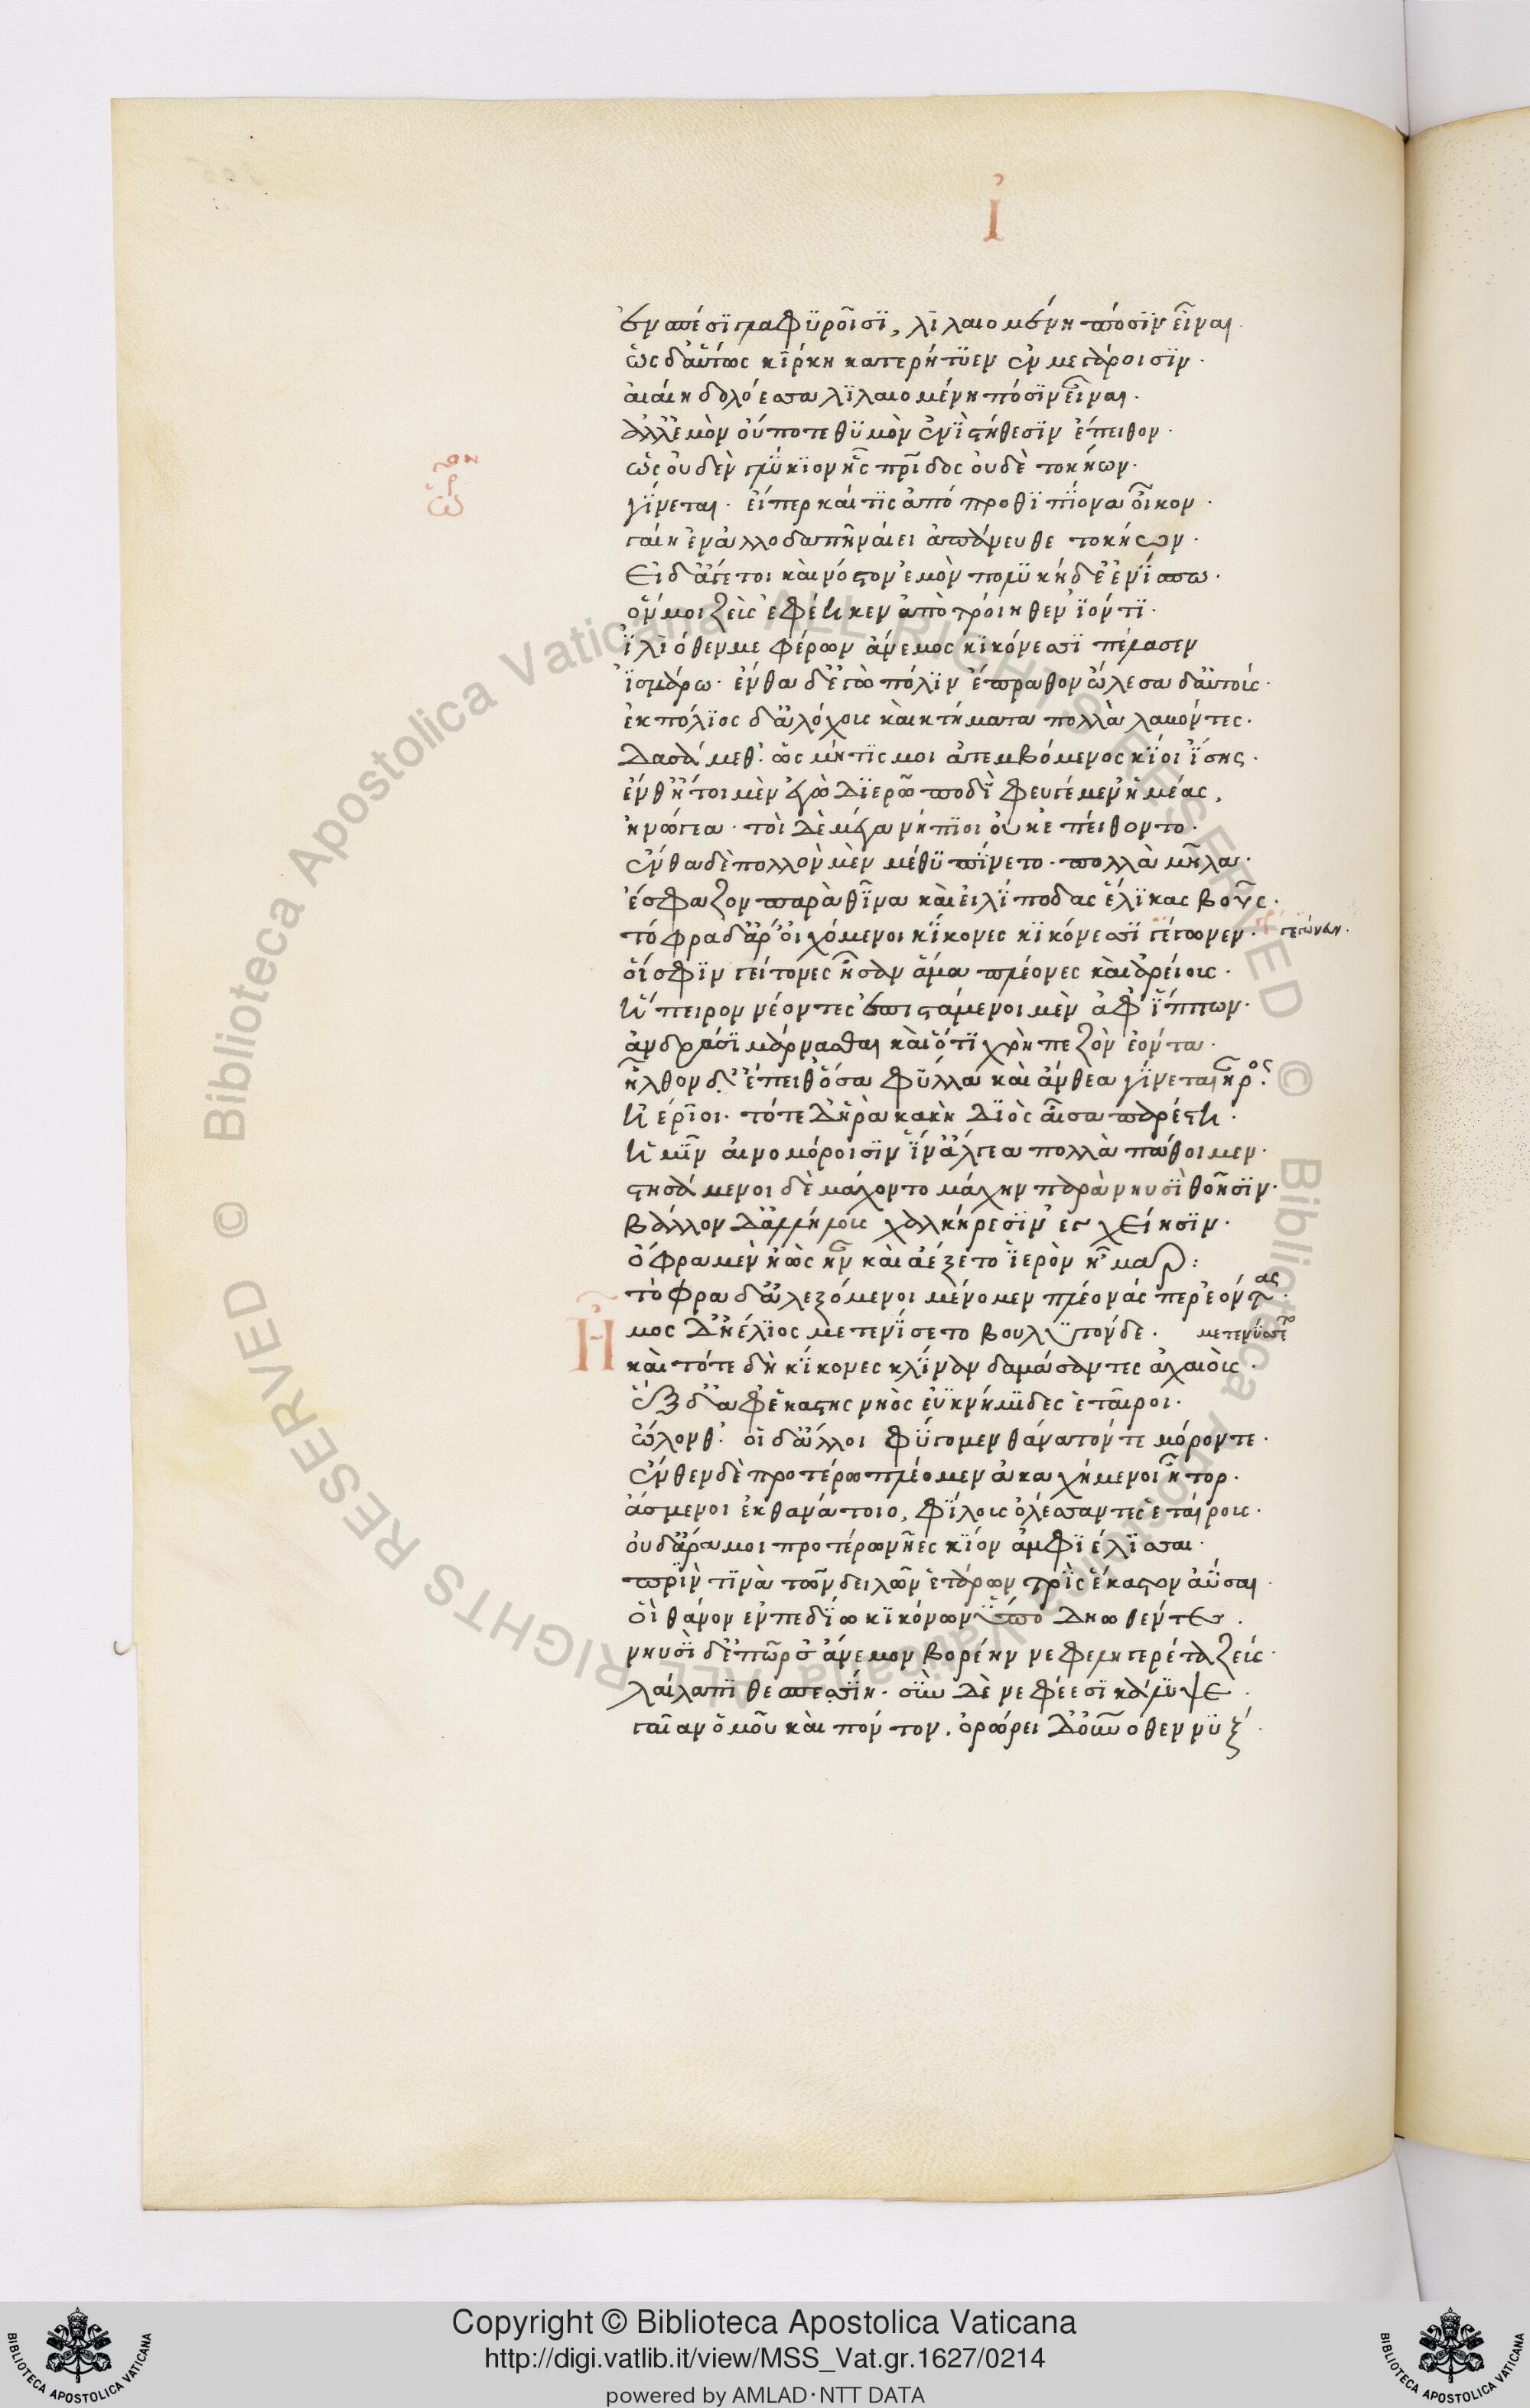 ἰ
ἐν σπέσϊ γλαφϋροῖσϊ, λϊλαιομένη πόσϊν εἶναι.
ὣς δ' αὔτως κίρκη κατερήτϋεν ἐν μεγάροισϊν.
αἰαίη δολόεσσα λϊλαιομένη πόσϊν εἶναι.
ἀλλ' ἐμὸν οὔποτε θϋμὸν ἐνὶ στήθεσϊν ἔπειθον.
ὣς οὐδὲν γλύκϊον ἧς πατρίδος οὐδὲ τοκήων.
γίνεται. εἴπερ καί τις ἀπόπροθϊ πίονα οἶκον.
ὡραῖον
γαίη ἐν ἀλλοδαπῇ ναίει ἀπάνευθε τοκήων.
Εἰ δ' ἄγε τοι καὶ νόστον ἐμὸν πολϋκηδέ' ἐνίσπω.
ὅν μοι ζεὺς ἐφέηκεν ἀπὸ τροίηθεν ἰόντϊ.
ἰλϊόθεν με φέρων ἄνεμος κϊκόνεσσϊ πέλασεν
ἰσμάρω. ἔνθα δ' ἐγὼ πόλϊν ἔπραθον ὤλεσα δ' αὐτούς.
ἐκ πόλϊος δ' ἀλόχους καὶ κτήματα πολλὰ λαβόντες.
δασσάμεθ'. ὡς μήτϊς μοι ἀτεμβόμενος κίοι ἴσης.
ἔνθ' ἤτοι μὲν ἐγὼ δϊερῶ ποδὶ φευγέμεν ἡμέας,
ἠνώγεα. τοὶ δὲ μέγα νήπϊοι οὐκ ἐπείθοντο.
ἔνθα δὲ πολλὸν μὲν μέθϋ πίνετο. πολλὰ μῆλα.
ἔσφαζον παρὰ θῖνα καὶ εἰλίποδας ἕλϊκας βοῦς.
τόφρα δ' ἄρ' οἰχόμενοι κίκονες κϊκόνεσσϊ γέγωνεν. γεγώνευν.
οἵ σφϊν γείτονες ἦσαν ἅμα πλέονες καὶ ἀρείους.
ἤπειρον νέοντες ἐπιστάμενοι μὲν ἀφ' ἵππων.
ἀνδράσϊ μάρνασθαι καὶ ὅτϊ χρὴ πεζὸν ἐόντα.
ἦλθον δ' ἔπειθ' ὅσα φύλλα καὶ ἄνθεα γίνεται ἦρος.
ἠέρϊοι. τότε δή ῥα κακὴ δϊὸς αἶσα παρέστη.
ἡμῖν αἰνομόροισϊν ἵν' ἄλγεα πολλὰ πάθοιμεν.
στησάμενοι δὲ μάχοντο μάχην παρὰ νηυσὶ θοῇσϊν.
βάλλον δ' ἀλλήλους χαλκήρεσϊν ἐγχείησϊν.
ὄφρα μὲν ἠὼς ἦν καὶ ἀέξετο ἱερὸν ἦμαρ:
τόφρα δ' ἀλεξόμενοι μένομεν πλέονάς περ ἐόντας.
Ἦμος δ' ἠέλϊος μετενίσετο βουλϋτόνδε. μετενίσσετο
καὶ τότε δὴ κίκονες κλῖναν δαμάσαντες ἀχαιούς.
ἓξ δ' ἀφ' ἑκάστης νηὸς ἐϋκνήμϊδες ἑταῖροι.
ὤλονθ'. οἱ δ' ἄλλοι φύγομεν θάνατόν τε μόρον τε.
ἔνθεν δὲ προτέρω πλέομεν ἀκαχήμενοι ἦτορ.
ἄσμενοι ἐκ θανάτοιο, φίλους ὀλέσαντες ἑταίρους.
οὐδ' ἄρα μοι προτέρω νῆες κίον ἀμφϊέλϊσσαι.
πρὶν τϊνὰ τῶν δειλῶν ἑτάρων τρὶς ἕκαστον ἀῦσαι.
οἳ θάνον ἐν πεδίω κϊκόνων ὕπο δηωθέντες.
νηυσὶ δ' ἐπῶρσ' ἄνεμον βορέην νεφεληγερέτα ζεύς.
λαίλαπϊ θεσπεσίη. σὺν δὲ νεφέεσϊ κάλυψε.
γαῖαν ὁμοῦ καὶ πόντον. ὀρώρει δ' οὐρανόθεν νύξ.
Copyright © Biblioteca Apostolica Vaticana
http://digi.vatlib.it/view/MSS_Vat.gr.1627/0214
powered by AMLAD·NTT DATA